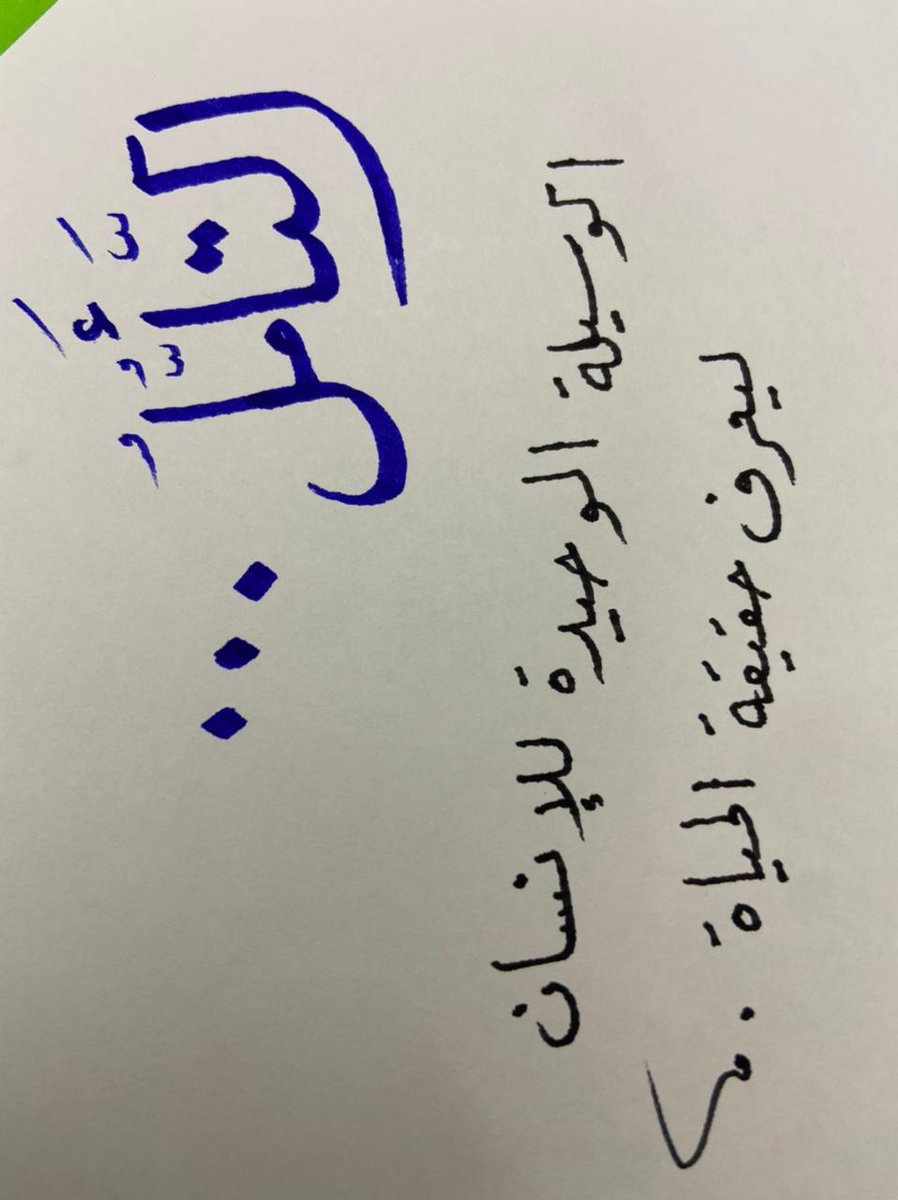 التَّأَمُّلُ ...
الوسيلة الوحيدة للإنسان
ليعرف حقيقة الحياة .